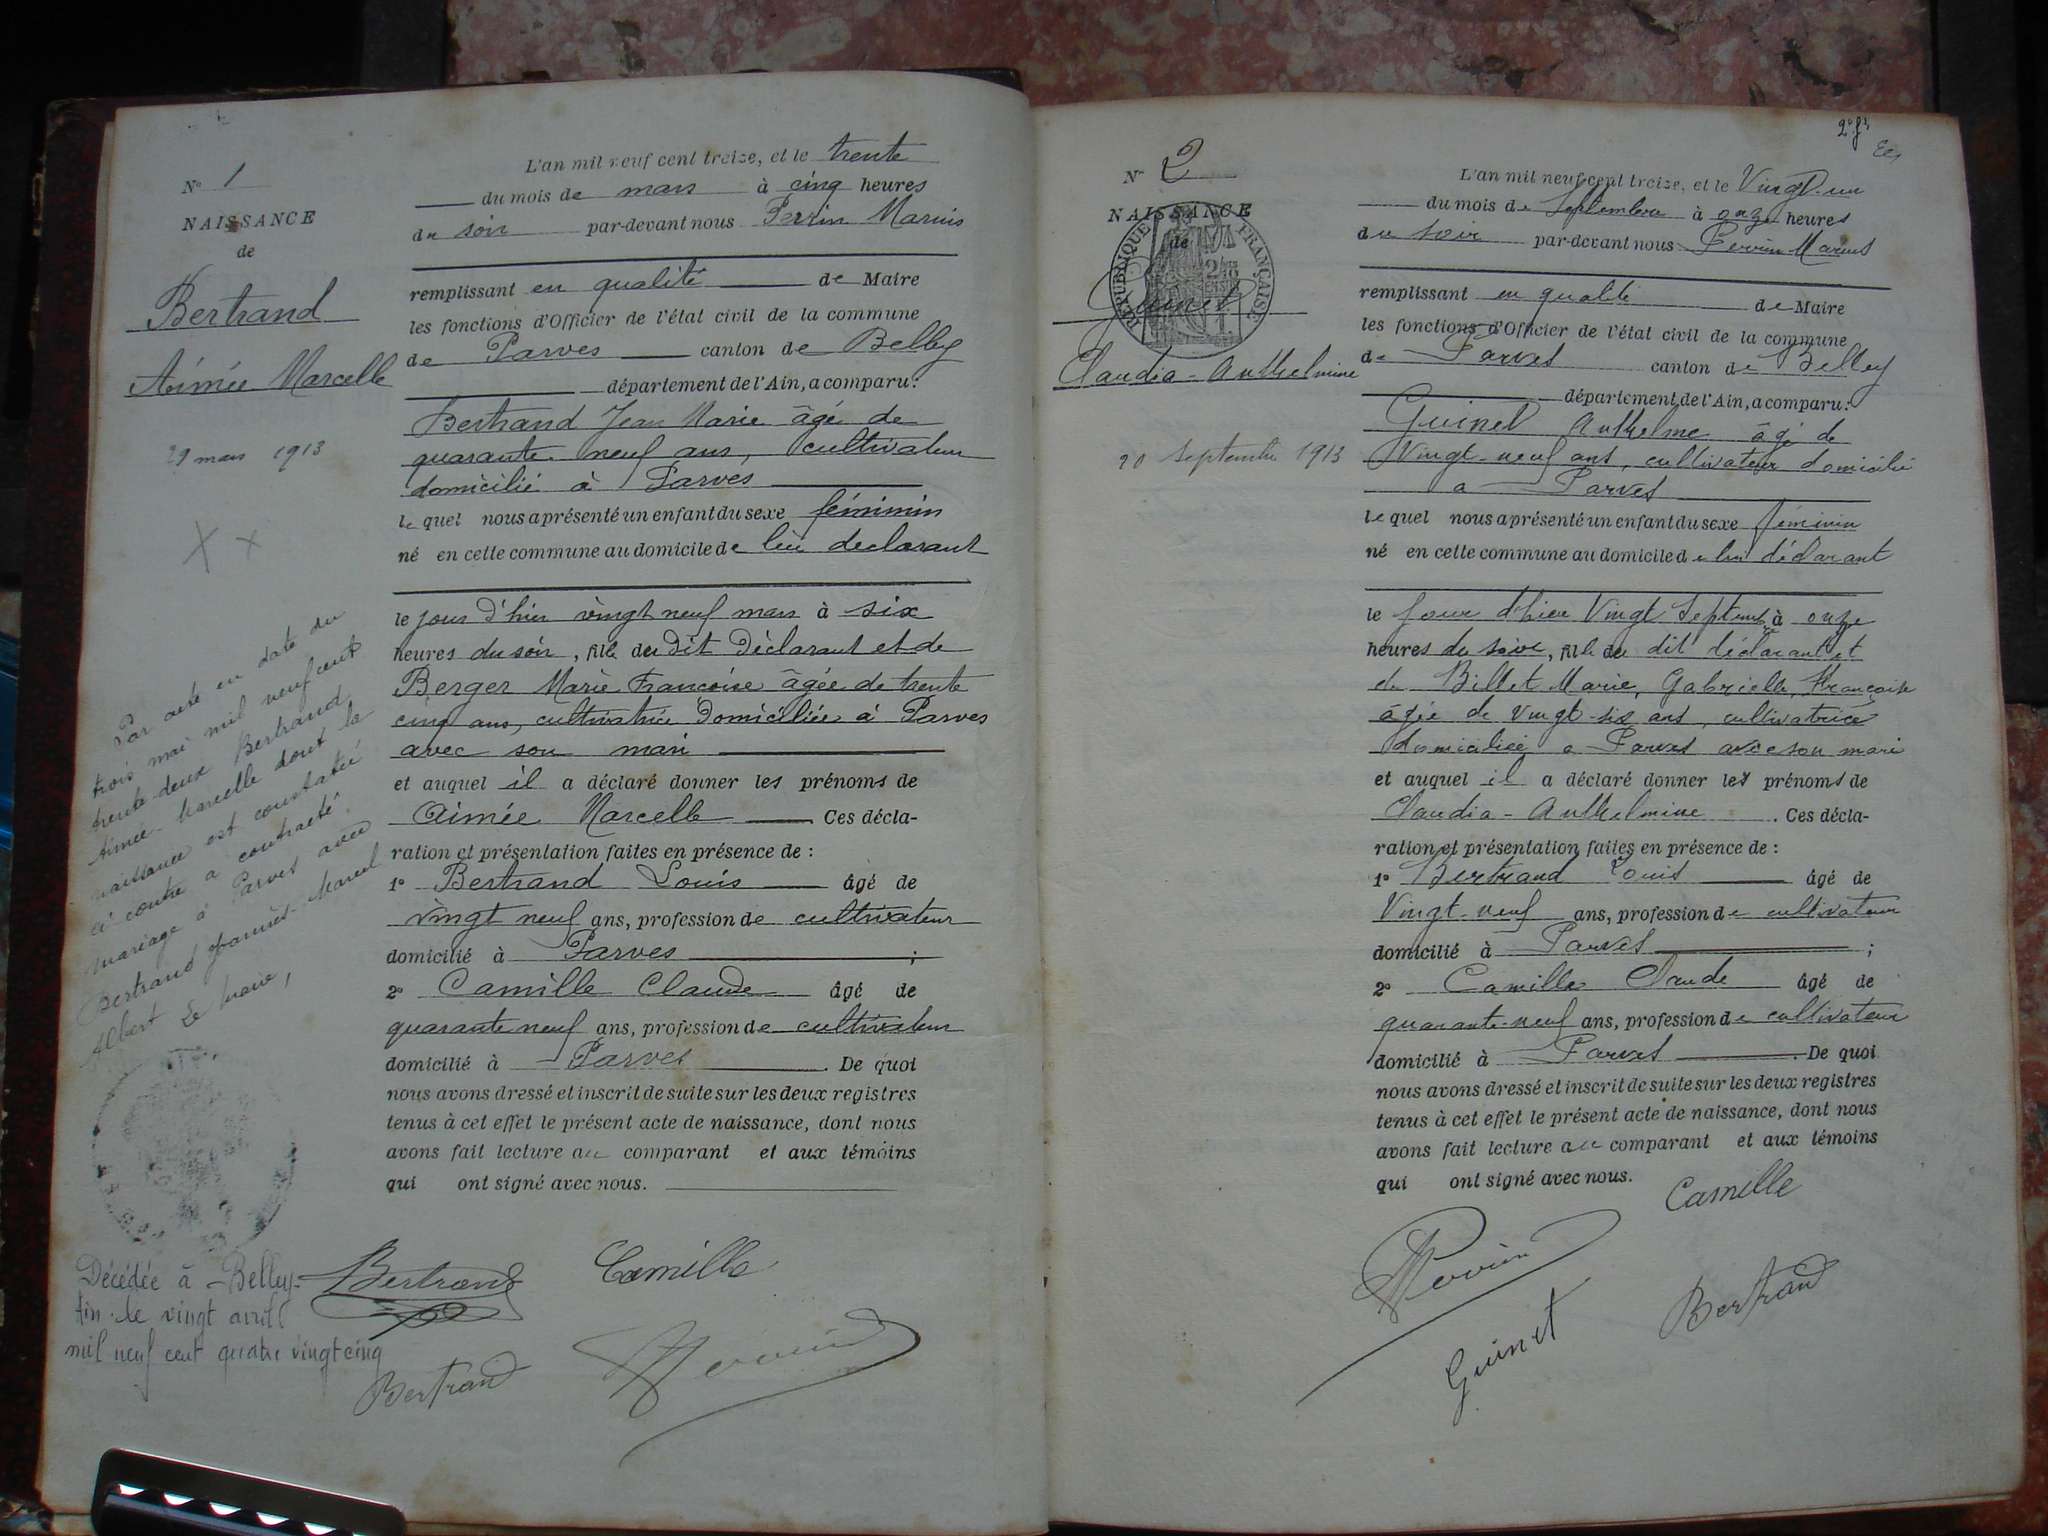 N° 1
NAISSANCE
de
Bertrand
Aimée Marcelle
29 mars 1913
Par acte en date du
trois mai mil neuf cent
trente-deux Bertrand
Aimée Marcelle dont la
naissance est constatée
ci-contre a contracté
mariage à Parves avec
Bertrand Marcel
Albert Le Maire,
Décédée à Belley
Ain le vingt avril
mil neuf cent quatre vingt cinq
L'an mil neuf cent treize, et le trente
du mois de mars à cinq heures
du soir par-devant nous Perrin Marius
remplissant en qualité de Maire
les fonctions d'Officier de l'état civil de la commune
de Parves canton de Belley
département de l'Ain, a comparu:
Bertrand Jean Marie âgé de
quarante neuf ans, cultivateur
domicilié à Parves
le quel nous a présenté un enfant du sexe féminin
né en cette commune au domicile de lui declarant
le jour d'hier vingt neuf mars à six
heures du soir, fille du dit Déclarant et de
Berger Marie Francoise âgée de trente
cinq ans, cultivatrice Domiciliée à Parves
avec son mari
et auquel il a déclaré donner les prénoms de
Aimée Marcelle Ces décla-
ration et présentation faites en présence de :
1° Bertrand Louis âgé de
vingt neuf ans, profession de cultivateur
domicilié à Parves ;
2° Camille Claude âgé de
quarante neuf ans, profession de cultivateur
domicilié à Parves . De quoi
nous avons dressé et inscrit de suite sur les deux registres
tenus à cet effet le présent acte de naissance, dont nous
avons fait lecture au comparant et aux témoins
qui ont signé avec nous.
Bertrand Camille
Bertrand Perrin
N° 2
NAISSANCE
de
RÉPUBLIQUE FRANÇAISE
Guinet
Claudia-Anthelmine
20 Septembre 1913
L'an mil neuf cent treize, et le Vingt-un
du mois de Septembre à onze heures
du soir par-devant nous Perrin Marius
remplissant en qualité de Maire
les fonctions d'Officier de l'état civil de la commune
de Parves canton de Belley
département de l'Ain, a comparu:
Guinet Anthelme âgé de
Vingt-neuf ans, cultivateur domicilié
a Parves
le quel nous a présenté un enfant du sexe féminin
né en cette commune au domicile de lui déclarant
le Jour d'hier Vingt Septembre à onze
heures du soir, fille du dit déclarant et
de Billet Marie, Gabrielle, Françoise
âgée de Vingt-six ans, cultivatrice
domiciliée a Parves avec son mari
et auquel il a déclaré donner les prénoms de
Claudia-Anthelmine . Ces décla-
ration et présentation faites en présence de :
1° Bertrand Louis âgé de
Vingt-neuf ans, profession de cultivateur
domicilié à Parves ;
2° Camille Claude âgé de
quarante-neuf ans, profession de cultivateur
domicilié à Parves . De quoi
nous avons dressé et inscrit de suite sur les deux registres
tenus à cet effet le présent acte de naissance, dont nous
avons fait lecture au comparant et aux témoins
qui ont signé avec nous. Camille
Perrin
Guinet Bertrand